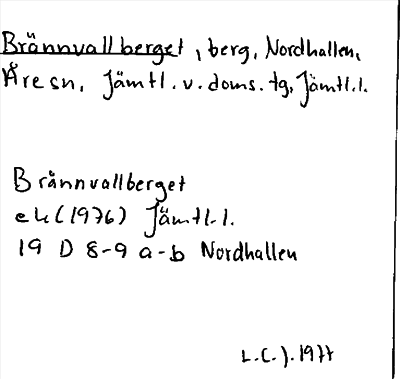 Brännvallberget, berg, Nordhallen,
Åre sn, Jämtl. v. doms. tg, Jämtl. l.
Brännvallberget
ek (1976) Jämtl. l.
19 D 8-9 a-b Nordhallen
L.C.J. 1977